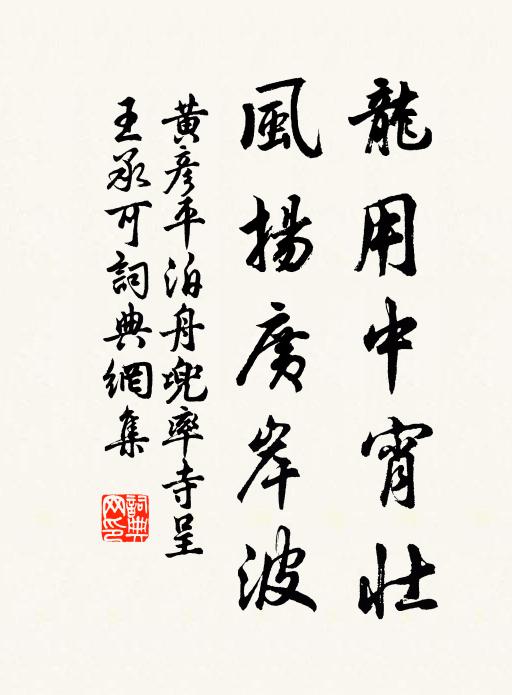 龍用中宵壯
風揚廣岸波
黃彥平泊舟兜率寺呈
王承可詞典網集
詞典網印